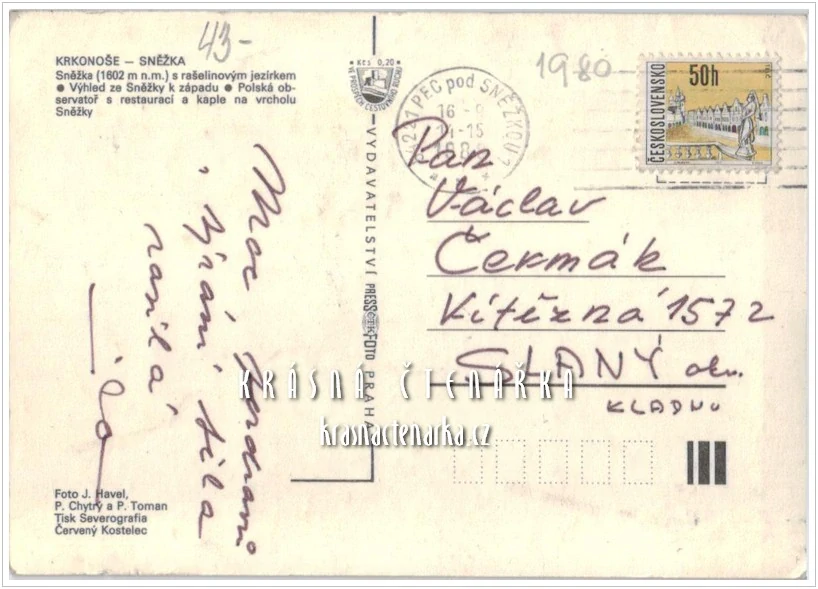 43-
KRKONOŠE — SNĚŽKA
Sněžka (1602 m n.m.) s rašelinovým jezírkem
● Výhled ze Sněžky k západu ● Polská ob-
servatoř s restaurací a kaple na vrcholu
Sněžky
Moc
Kčs 0,20
VYDAVATELSTVÍ PRESSFOTO PRAHA
PEC pod SNĚŽKOU
16
14-15
1980
ČESKOSLOVENSKO
50h
Pan
Václav
Čermák
Vítězná 1572
SLANÝ okr.
KLADNO
KRÁSNÁ ČTENÁŘKA
krasnactenarka.cz
Foto J. Havel,
P. Chytrý a P. Toman
Tisk Severografia
Červený Kostelec